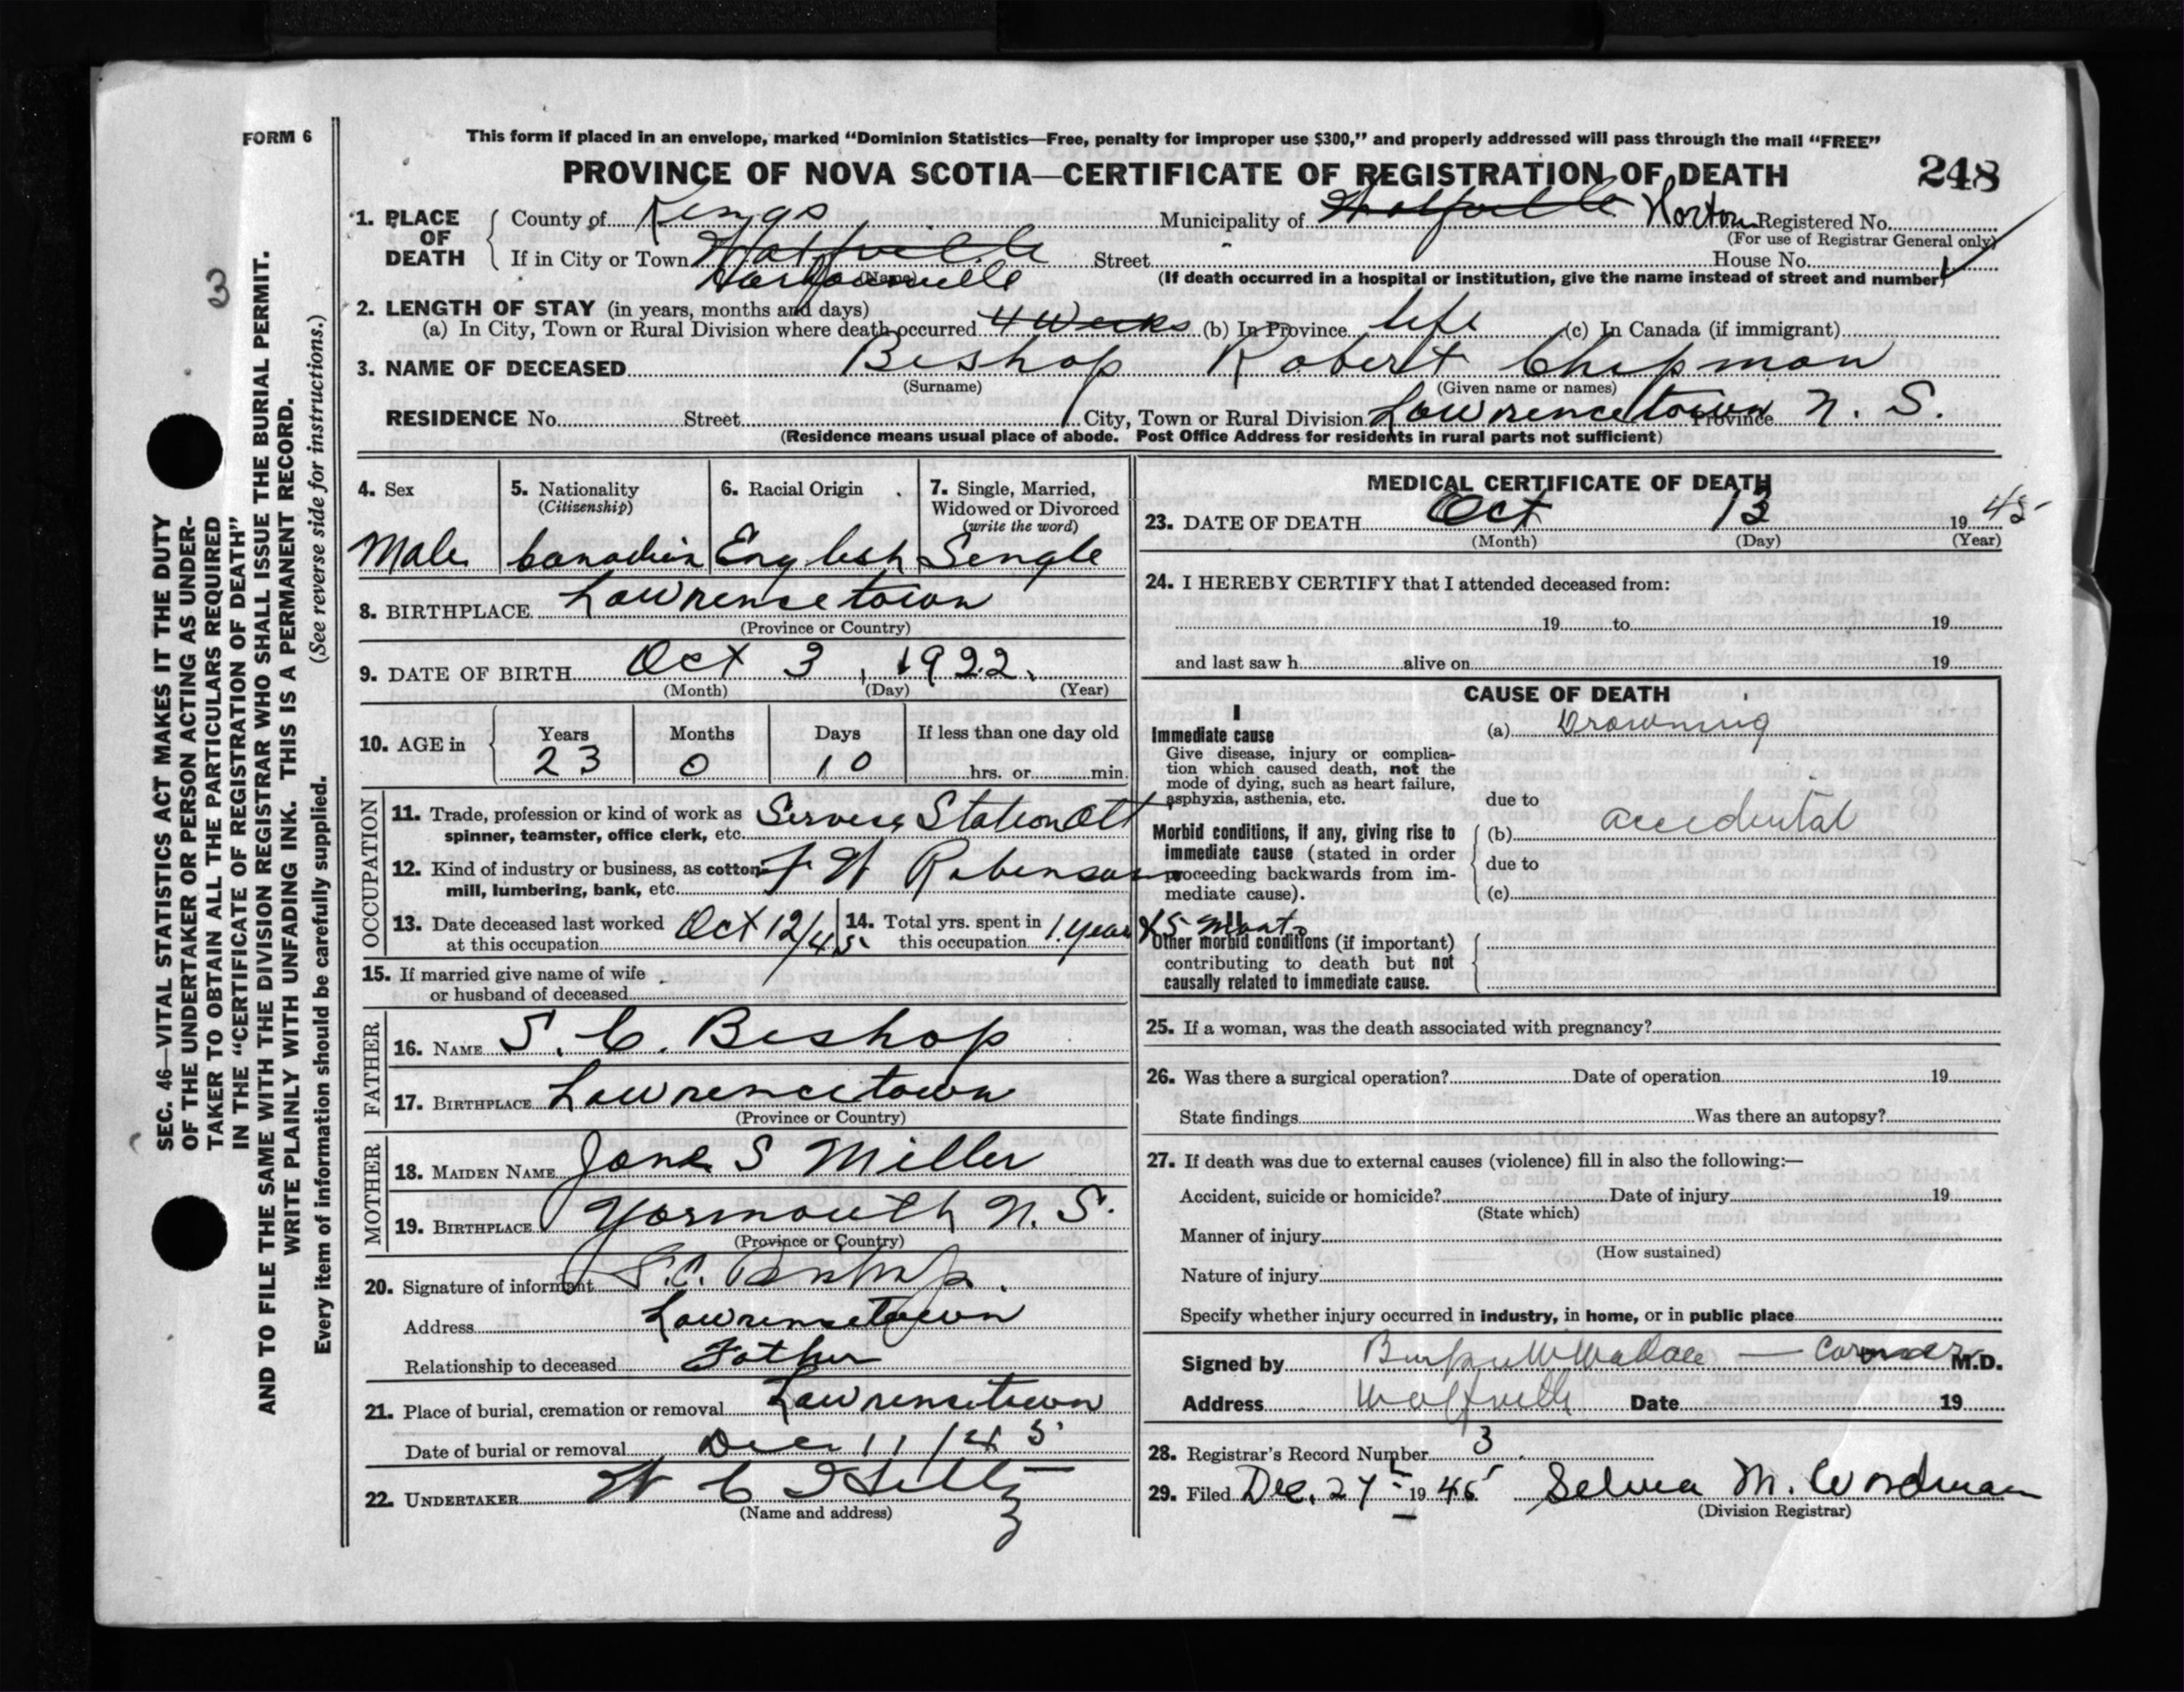 FORM 6
This form if placed in an envelope, marked “Dominion Statistics—Free, penalty for improper use $300,” and properly addressed will pass through the mail “FREE”
PROVINCE OF NOVA SCOTIA—CERTIFICATE OF REGISTRATION OF DEATH 248
3
SEC. 46—VITAL STATISTICS ACT MAKES IT THE DUTY
OF THE UNDERTAKER OR PERSON ACTING AS UNDER-
TAKER TO OBTAIN ALL THE PARTICULARS REQUIRED
IN THE “CERTIFICATE OF REGISTRATION OF DEATH”
AND TO FILE THE SAME WITH THE DIVISION REGISTRAR WHO SHALL ISSUE THE BURIAL PERMIT.
WRITE PLAINLY WITH UNFADING INK. THIS IS A PERMANENT RECORD.
Every item of information should be carefully supplied. (See reverse side for instructions.)
1. PLACE OF DEATH
County of Kings Municipality of Wolfville Horton Registered No.
(For use of Registrar General only)
If in City or Town Wolfville Street House No.
(Name) (If death occurred in a hospital or institution, give the name instead of street and number)
2. LENGTH OF STAY (in years, months and days)
(a) In City, Town or Rural Division where death occurred 4 weeks (b) In Province life (c) In Canada (if immigrant)
3. NAME OF DECEASED Bishop Robert Chipman
(Surname) (Given name or names)
RESIDENCE No. Street City, Town or Rural Division Lawrencetown Province N. S.
(Residence means usual place of abode. Post Office Address for residents in rural parts not sufficient)
4. Sex 5. Nationality 6. Racial Origin 7. Single, Married,
(Citizenship) Widowed or Divorced
(write the word)
Male Canadian English Single
8. BIRTHPLACE Lawrencetown
(Province or Country)
9. DATE OF BIRTH Oct 3, 1922.
(Month) (Day) (Year)
10. AGE in Years Months Days If less than one day old
23 0 10 hrs. or min.
OCCUPATION
11. Trade, profession or kind of work as Service Station Att
spinner, teamster, office clerk, etc.
12. Kind of industry or business, as cotton F W Robinson
mill, lumbering, bank, etc.
13. Date deceased last worked Oct 12/45 14. Total yrs. spent in 1. year & 5 Months
at this occupation this occupation
15. If married give name of wife
or husband of deceased
FATHER
16. NAME S. C. Bishop
17. BIRTHPLACE Lawrencetown
(Province or Country)
MOTHER
18. MAIDEN NAME Jane S Miller
19. BIRTHPLACE Yarmouth N. S.
(Province or Country)
20. Signature of informant S.C. Bishop.
Address Lawrencetown
Relationship to deceased Father
21. Place of burial, cremation or removal Lawrencetown
Date of burial or removal Dec 11/45
22. UNDERTAKER W C Hiltz
(Name and address)
MEDICAL CERTIFICATE OF DEATH
23. DATE OF DEATH Oct 13 1945
(Month) (Day) (Year)
24. I HEREBY CERTIFY that I attended deceased from:
19 to 19
and last saw h alive on 19
CAUSE OF DEATH
I
Immediate cause (a) Drowning
Give disease, injury or complica-
tion which caused death, not the
mode of dying, such as heart failure,
asphyxia, asthenia, etc. due to
Morbid conditions, if any, giving rise to (b) accidental
immediate cause (stated in order due to
proceeding backwards from im-
mediate cause). (c)
II
Other morbid conditions (if important)
contributing to death but not
causally related to immediate cause.
25. If a woman, was the death associated with pregnancy?
26. Was there a surgical operation? Date of operation 19
State findings Was there an autopsy?
27. If death was due to external causes (violence) fill in also the following:—
Accident, suicide or homicide? Date of injury 19
(State which)
Manner of injury
(How sustained)
Nature of injury
Specify whether injury occurred in industry, in home, or in public place
Signed by — Coroner M.D.
Address Wolfville Date 19
28. Registrar’s Record Number 3.
29. Filed Dec. 27 1945 Selma M. Woodman
(Division Registrar)